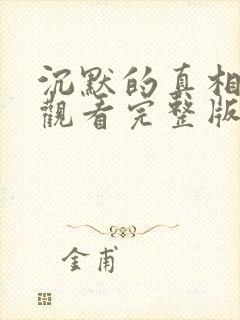 沉默的真相
觀看完整版
金甫